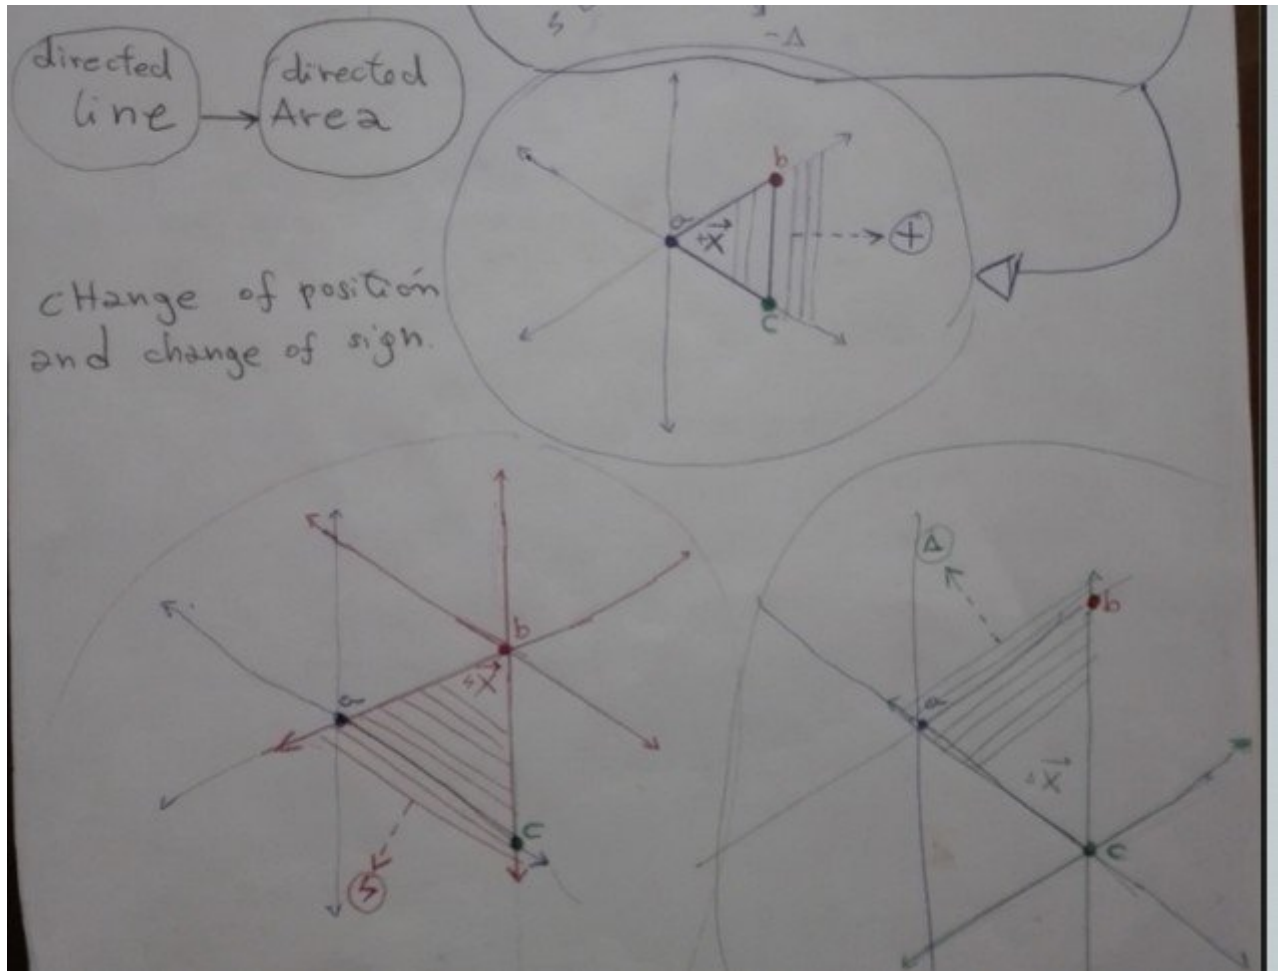 -Δ
directed
line
directed
Area
b
a
+X
+
c
cHange of position
and change of sign.
b
X
a
c
Δ
b
a
X
c